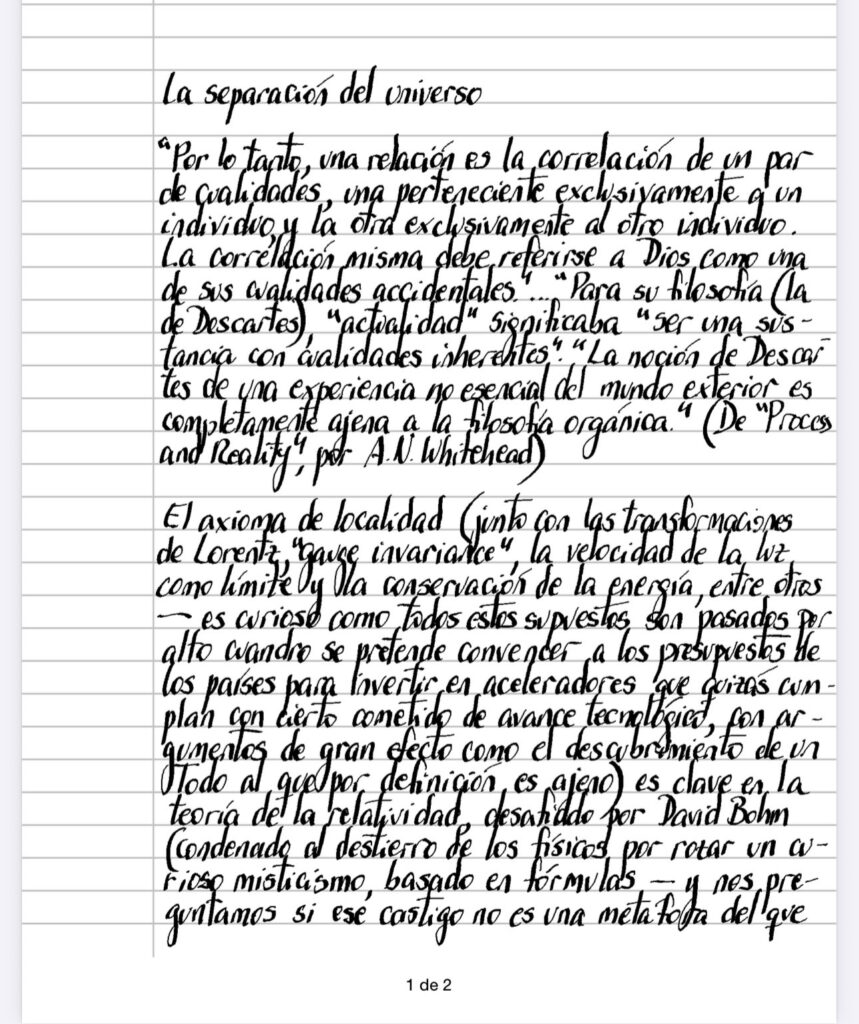 La separación del universo
"Por lo tanto, una relación es la correlación de un par
de cualidades, una perteneciente exclusivamente a un
individuo, y la otra exclusivamente al otro individuo.
La correlación misma debe referirse a Dios como una
de sus cualidades accidentales."..."Para su filosofía (la
de Descartes), "actualidad" significaba "ser una sus-
tancia con cualidades inherentes". "La noción de Descar
tes de una experiencia no esencial del mundo exterior es
completamente ajena a la filosofía orgánica." (De "Process
and Reality", por A.N. Whitehead)
El axioma de localidad (junto con las transformaciones
de Lorentz, "gauge invariance", la velocidad de la luz
como límite y la conservación de la energía, entre otros
— es curioso como todos estos supuestos son pasados por
alto cuandro se pretende convencer a los presupuestos de
los países para invertir en aceleradores que quizás cum-
plan con cierto cometido de avance tecnológico, con ar-
gumentos de gran efecto como el descubrimiento de un
Todo al que, por definición, es ajeno) es clave en la
teoría de la relatividad, desafiado por David Bohm
(condenado al destierro de los físicos por rotar un cu-
rioso misticismo, basado en fórmulas — y nos pre-
guntamos si ese castigo no es una metáfora del que
1 de 2